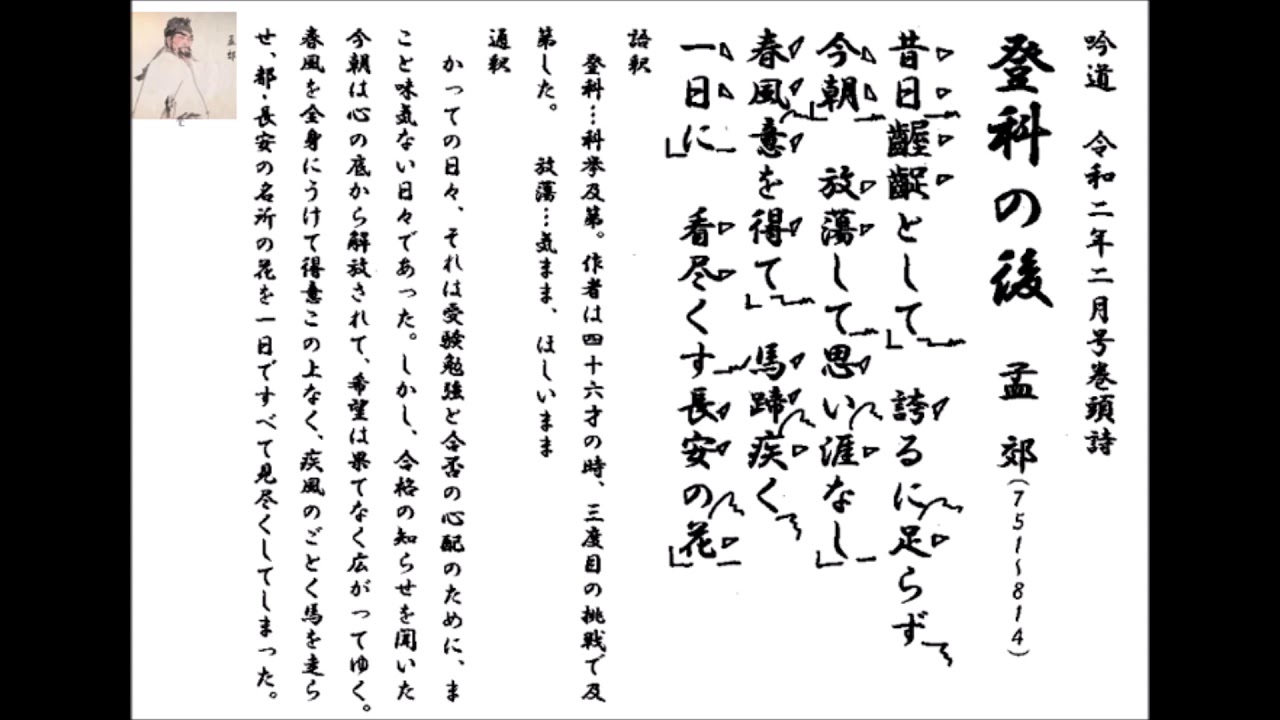 吟道 令和二年二月号巻頭詩
登科の後 孟郊(751~814)
昔日齷齪として 誇るに足らず
今朝 放蕩して思い涯なし
春風意を得て 馬蹄疾く
一日に 看尽くす長安の花
語釈
登科…科挙及第。作者は四十六才の時、三度目の挑戦で及
第した。 放蕩…気まま、ほしいまま
通釈
かっての日々、それは受験勉強と合否の心配のために、ま
こと味気ない日々であった。しかし、合格の知らせを聞いた
今朝は心の底から解放されて、希望は果てなく広がってゆく。
春風を全身にうけて得意この上なく、疾風のごとく馬を走ら
せ、都・長安の名所の花を一日ですべて見尽くしてしまった。
孟郊